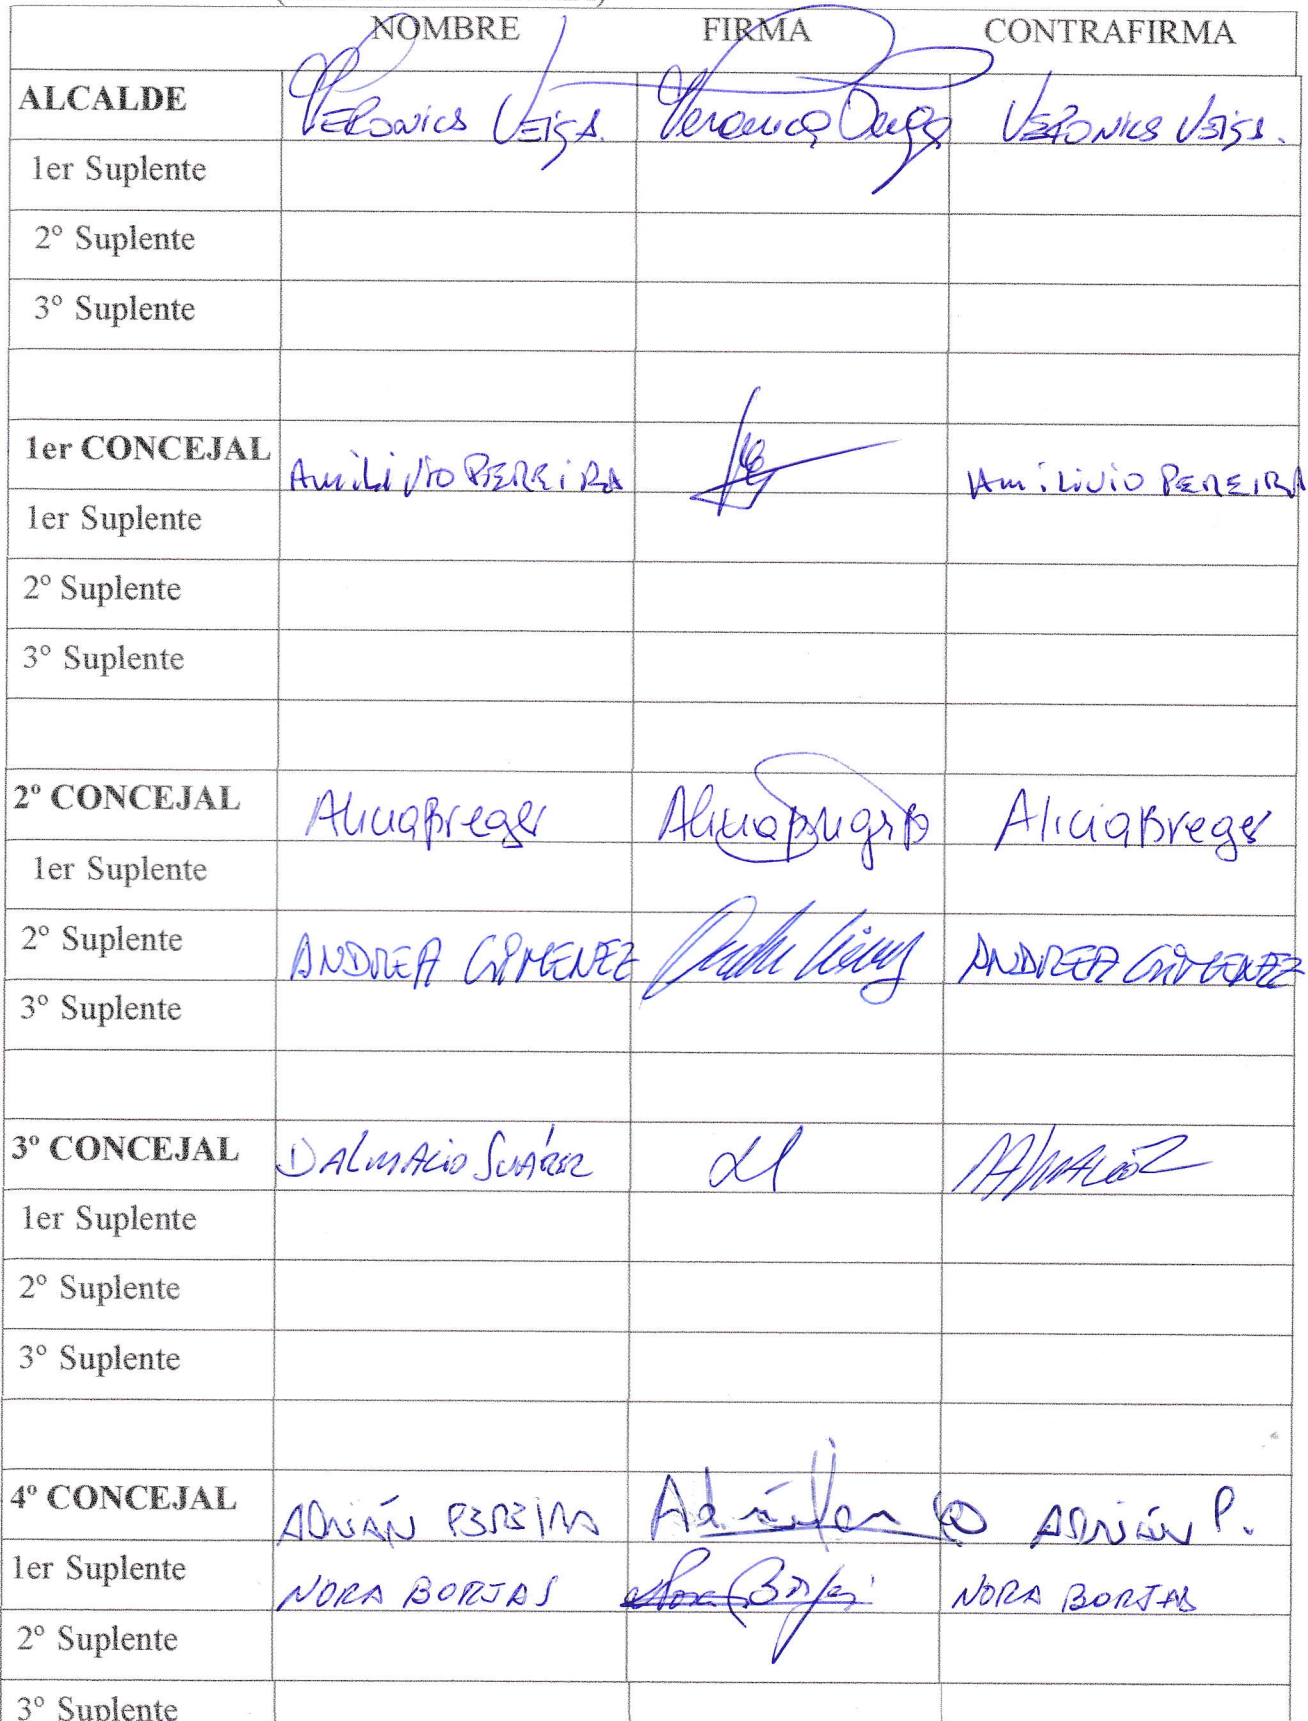 NOMBRE FIRMA CONTRAFIRMA
ALCALDE VERONICA VEIGA. Veronica Veiga VERONICA VEIGA.
1er Suplente
2º Suplente
3º Suplente
1er CONCEJAL AmiLiVio PEREiRA AmiLiViO PEREIRA
1er Suplente
2º Suplente
3º Suplente
2º CONCEJAL Alicia Breger Alicia Breger
1er Suplente
2º Suplente ANDREA GIMENEZ ANDREA GIMENEZ
3º Suplente
3º CONCEJAL DALMACIO SUÁREZ
1er Suplente
2º Suplente
3º Suplente
4º CONCEJAL ADRIÁN PEREIRA Adrián ADRIÁN P.
1er Suplente NORA BORJAS Nora Borjas NORA BORJAS
2º Suplente
3º Suplente